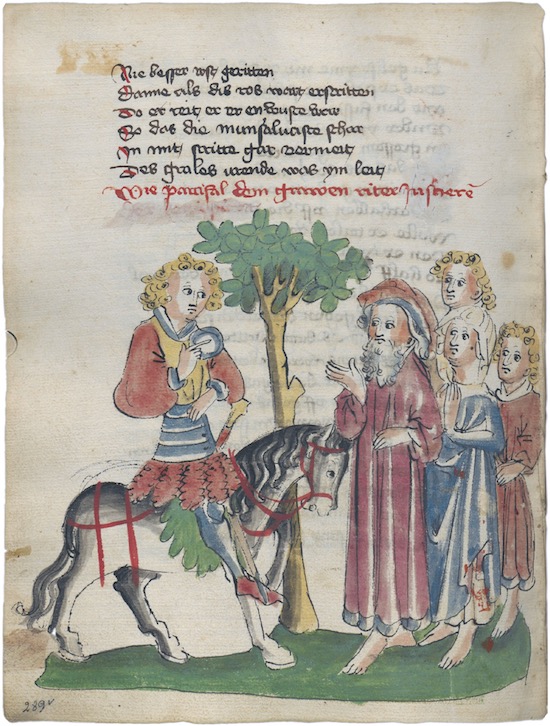 Nie besser geritten
Danne als dis ros wart erstritten
Do er reit er er enwuste war
So das die munsaluatste schar
In mit stritte gar vermeit
Des grales vrende was ym leit
Wie partzifal dem grawen ritter Justierē
289v